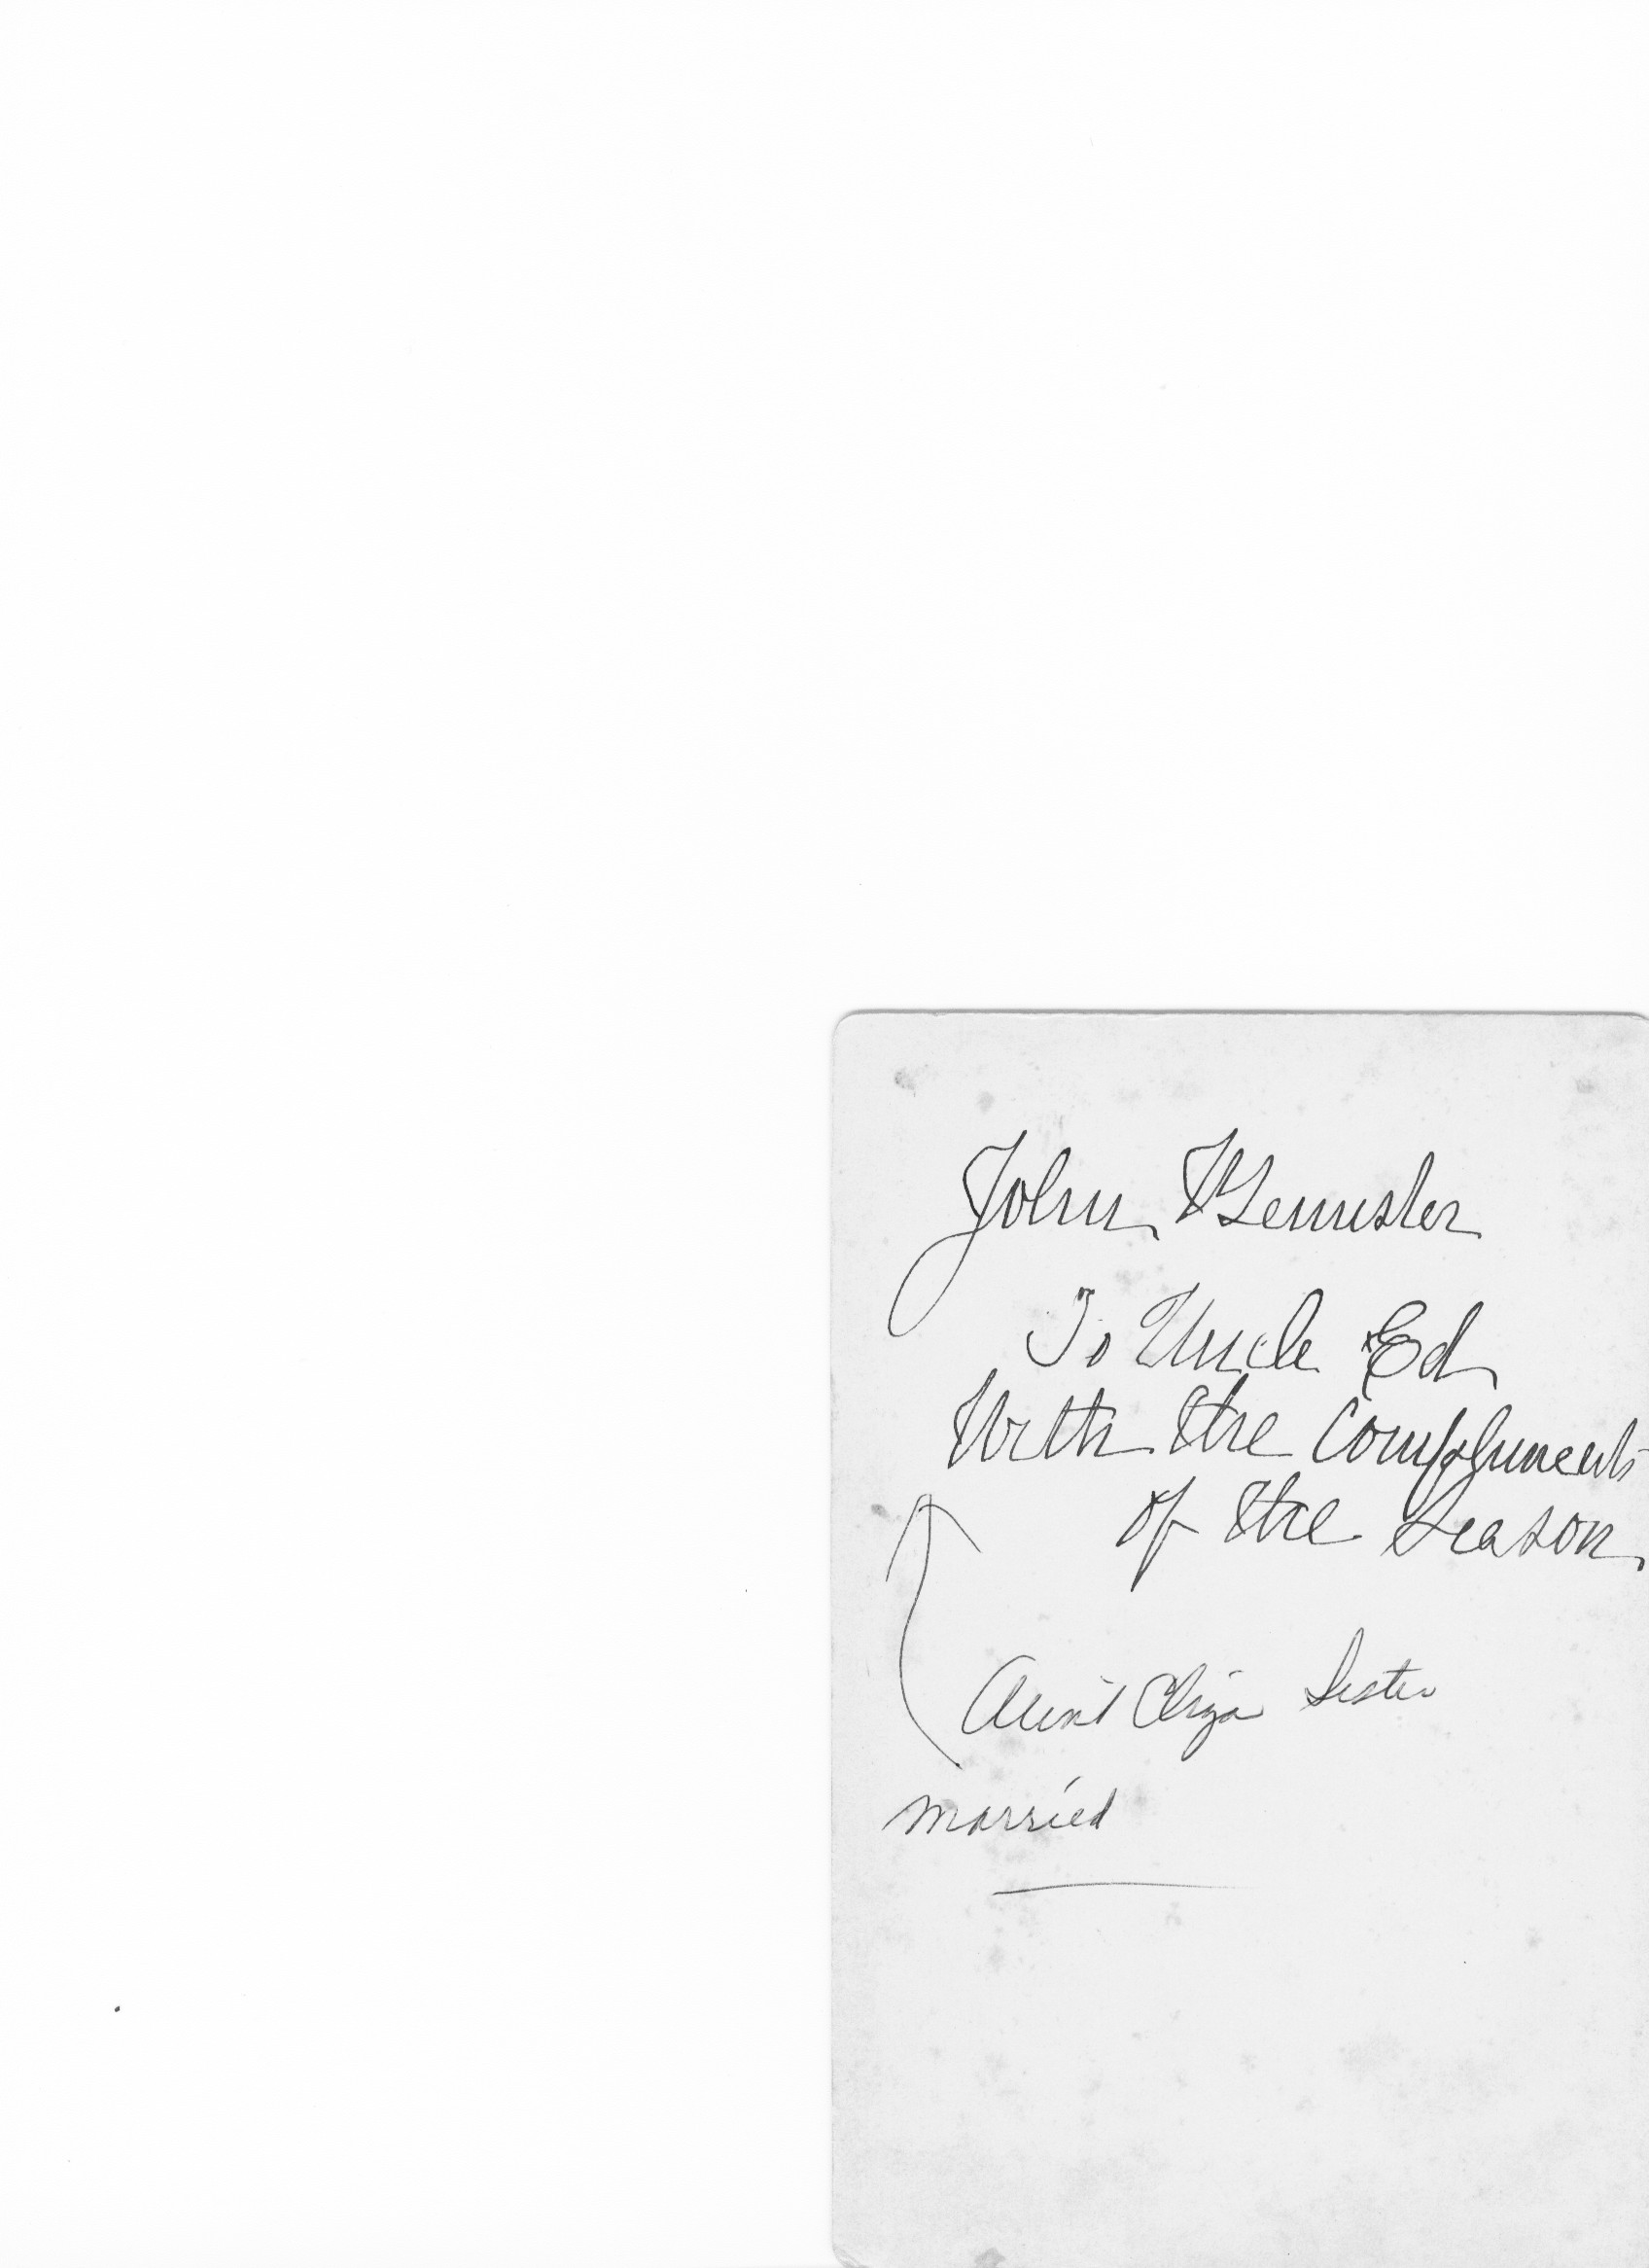 John
To Uncle Ed
With the Compliments
of the Season
Aunt Eliza Sister
married